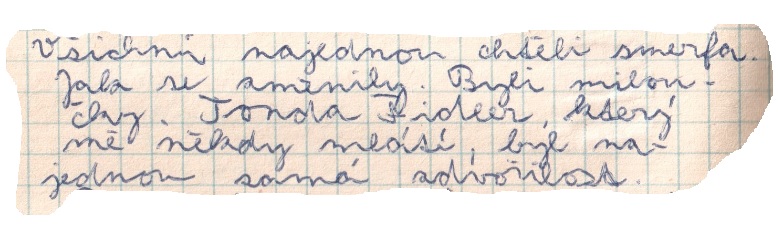 Všichni najednou chtěli smerfa.
Jak se změnily. Byli milou-
čky. Tonda Fideer, který
mě někdy mlásí, byl na-
jednou samá zdvořilost.